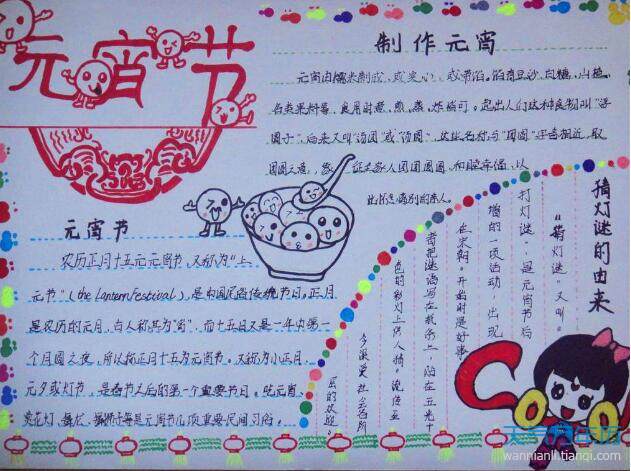 元宵节
制作元宵
元宵由糯米制成,或实心,或带馅。馅有豆沙、白糖、山楂、
各类果料等,食用时煮、煎、蒸、炸皆可。起初人们这种食物叫“浮
圆子”,后来又叫“汤团”或“汤圆”,这些名称与“团圆”字音相近,取
团圆之意,象征全家人团团圆圆,和睦幸福,以
此怀念离别的亲人。
元宵节
农历正月十五元元宵节,又称为“上
元节”(the Lantern Festival),是中国民俗传统节日。正月
是农历的元月,古人称其为“宵”,而十五日又是一年中第一
个月圆之夜,所以称正月十五为元宵节。又称为小正月、
元夕或灯节,是春节之后的第一个重要节日。吃元宵、
赏花灯、舞龙、舞狮子等是元宵节几项重要民间习俗。
猜灯谜的由来
“猜灯谜”又叫“
打灯谜”,是元宵节后
增的一项活动,出现
在宋朝。开始时是好事
者把谜语写在纸条上,贴在五光十
色的彩灯上供人猜。
今很受社会各阶
层的欢迎。
天气生活
wannianli.tianqi.com